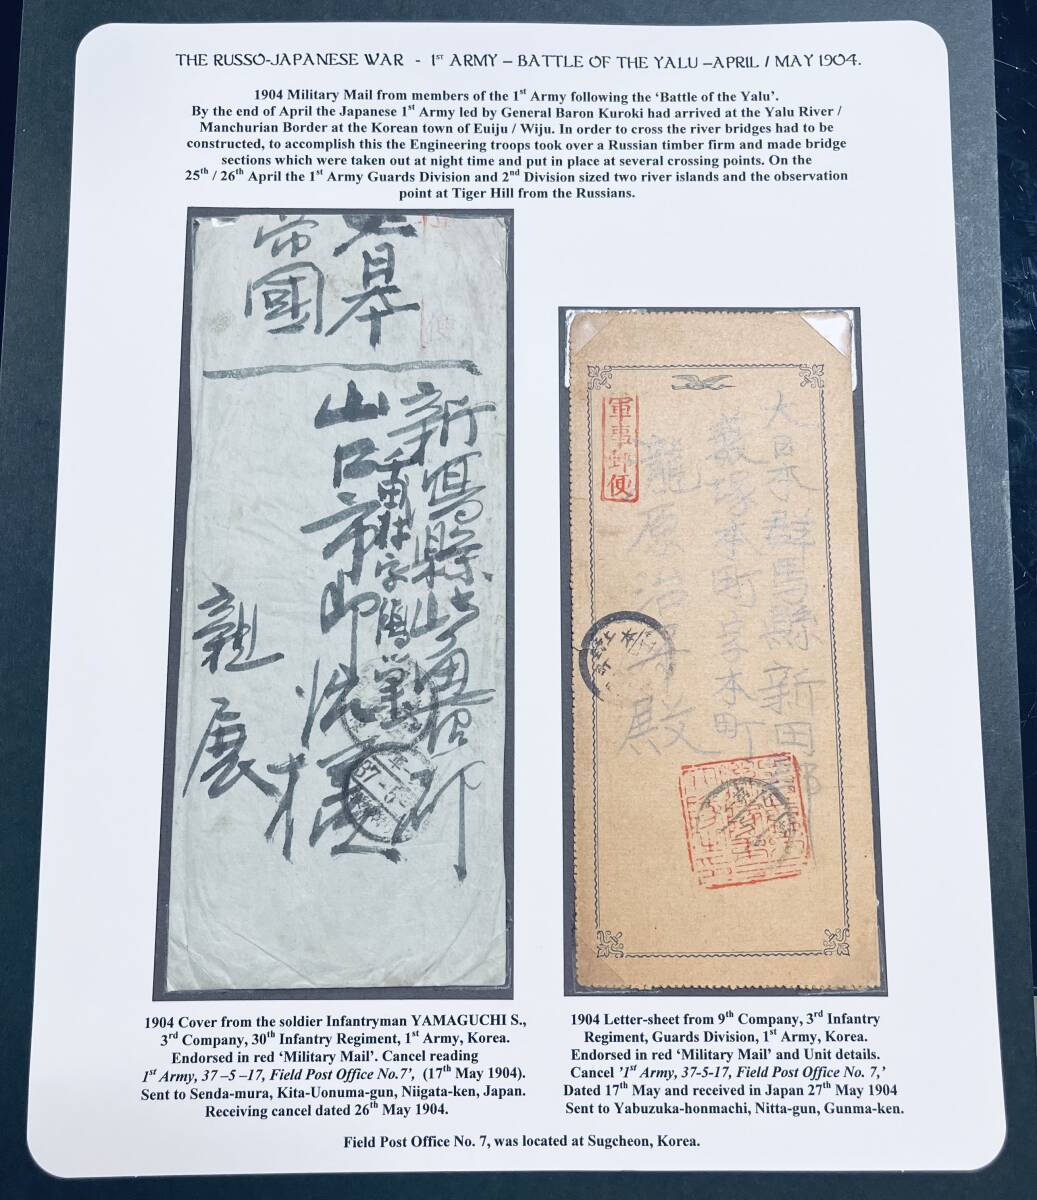 THE RUSSO-JAPANESE WAR - 1ST ARMY – BATTLE OF THE YALU –APRIL / MAY 1904.
1904 Military Mail from members of the 1st Army following the ‘Battle of the Yalu’.
By the end of April the Japanese 1st Army led by General Baron Kuroki had arrived at the Yalu River /
Manchurian Border at the Korean town of Euiju / Wiju. In order to cross the river bridges had to be
constructed, to accomplish this the Engineering troops took over a Russian timber firm and made bridge
sections which were taken out at night time and put in place at several crossing points. On the
25th / 26th April the 1st Army Guards Division and 2nd Division sized two river islands and the observation
point at Tiger Hill from the Russians.
日本
帝國
新潟縣北魚沼郡
千田村字
山口市郎
親展
37-5-
軍事郵便
大日本群馬縣新田郡
藪塚本町字本町
龍原治平殿
1904 Cover from the soldier Infantryman YAMAGUCHI S.,
3rd Company, 30th Infantry Regiment, 1st Army, Korea.
Endorsed in red ‘Military Mail’. Cancel reading
1st Army, 37 –5 –17, Field Post Office No.7’, (17th May 1904).
Sent to Senda-mura, Kita-Uonuma-gun, Niigata-ken, Japan.
Receiving cancel dated 26th May 1904.
1904 Letter-sheet from 9th Company, 3rd Infantry
Regiment, Guards Division, 1st Army, Korea.
Endorsed in red ‘Military Mail’ and Unit details.
Cancel ’1st Army, 37-5-17, Field Post Office No. 7,’
Dated 17th May and received in Japan 27th May 1904
Sent to Yabuzuka-honmachi, Nitta-gun, Gunma-ken.
Field Post Office No. 7, was located at Sugcheon, Korea.